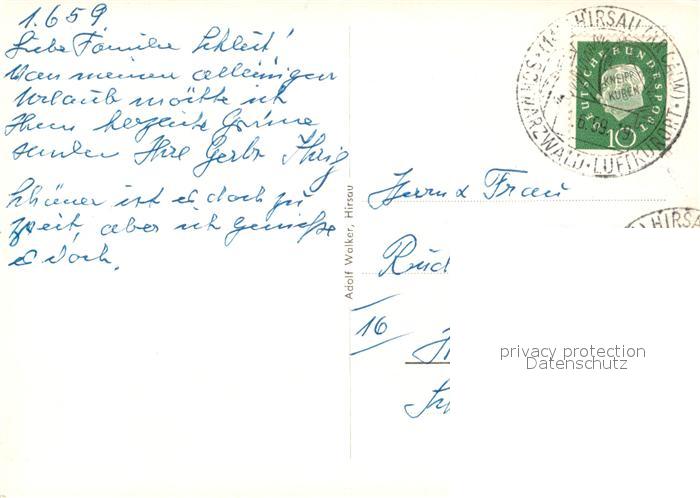 1.6.59
Liebe Familie Schleit!
Von meinen alleinigen
Urlaub möchte ich
Ihnen herzliche Grüsse
senden Ihre Gerb. Ihrig
Schöner ist es doch zu
zweit, aber ich geniesse
es doch.
Adolf Walker, Hirsau
Herrn & Frau
Rud
16
HIRSAU (KR. CALW)
SCHWARZWALD · LUFTKURORT
KNEIPP
KUREN
6.59
DEUTSCHE BUNDESPOST
10
HIRSA
privacy protection
Datenschutz